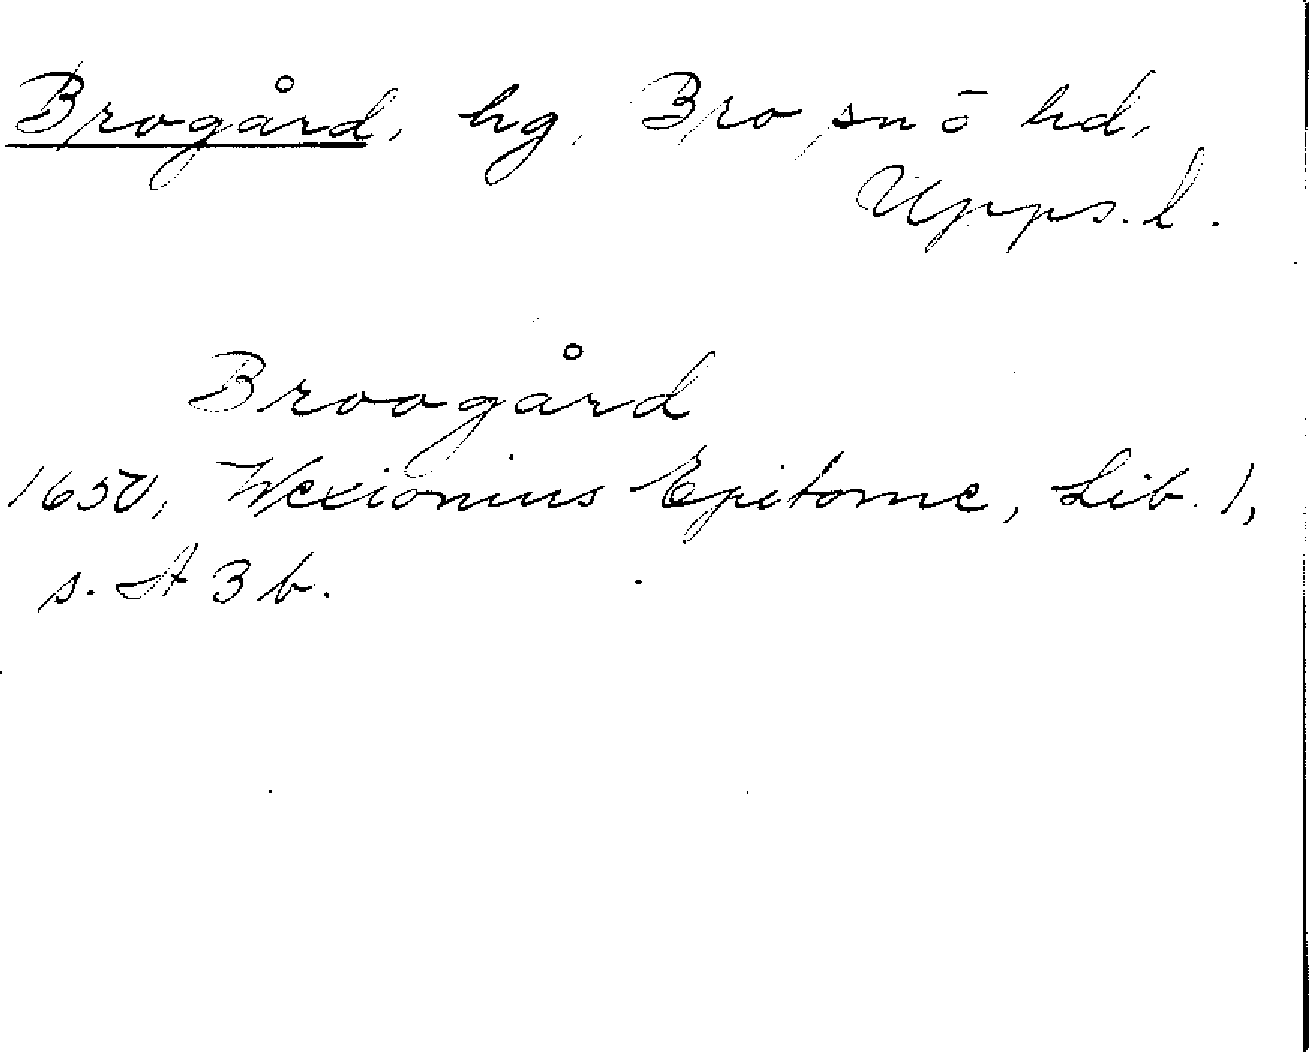 Brogård, hg, Bro sn ō hd,
Upps. l.
Broogård
1650, Wexionius Epitome, Lib. 1,
s. A 3 b.